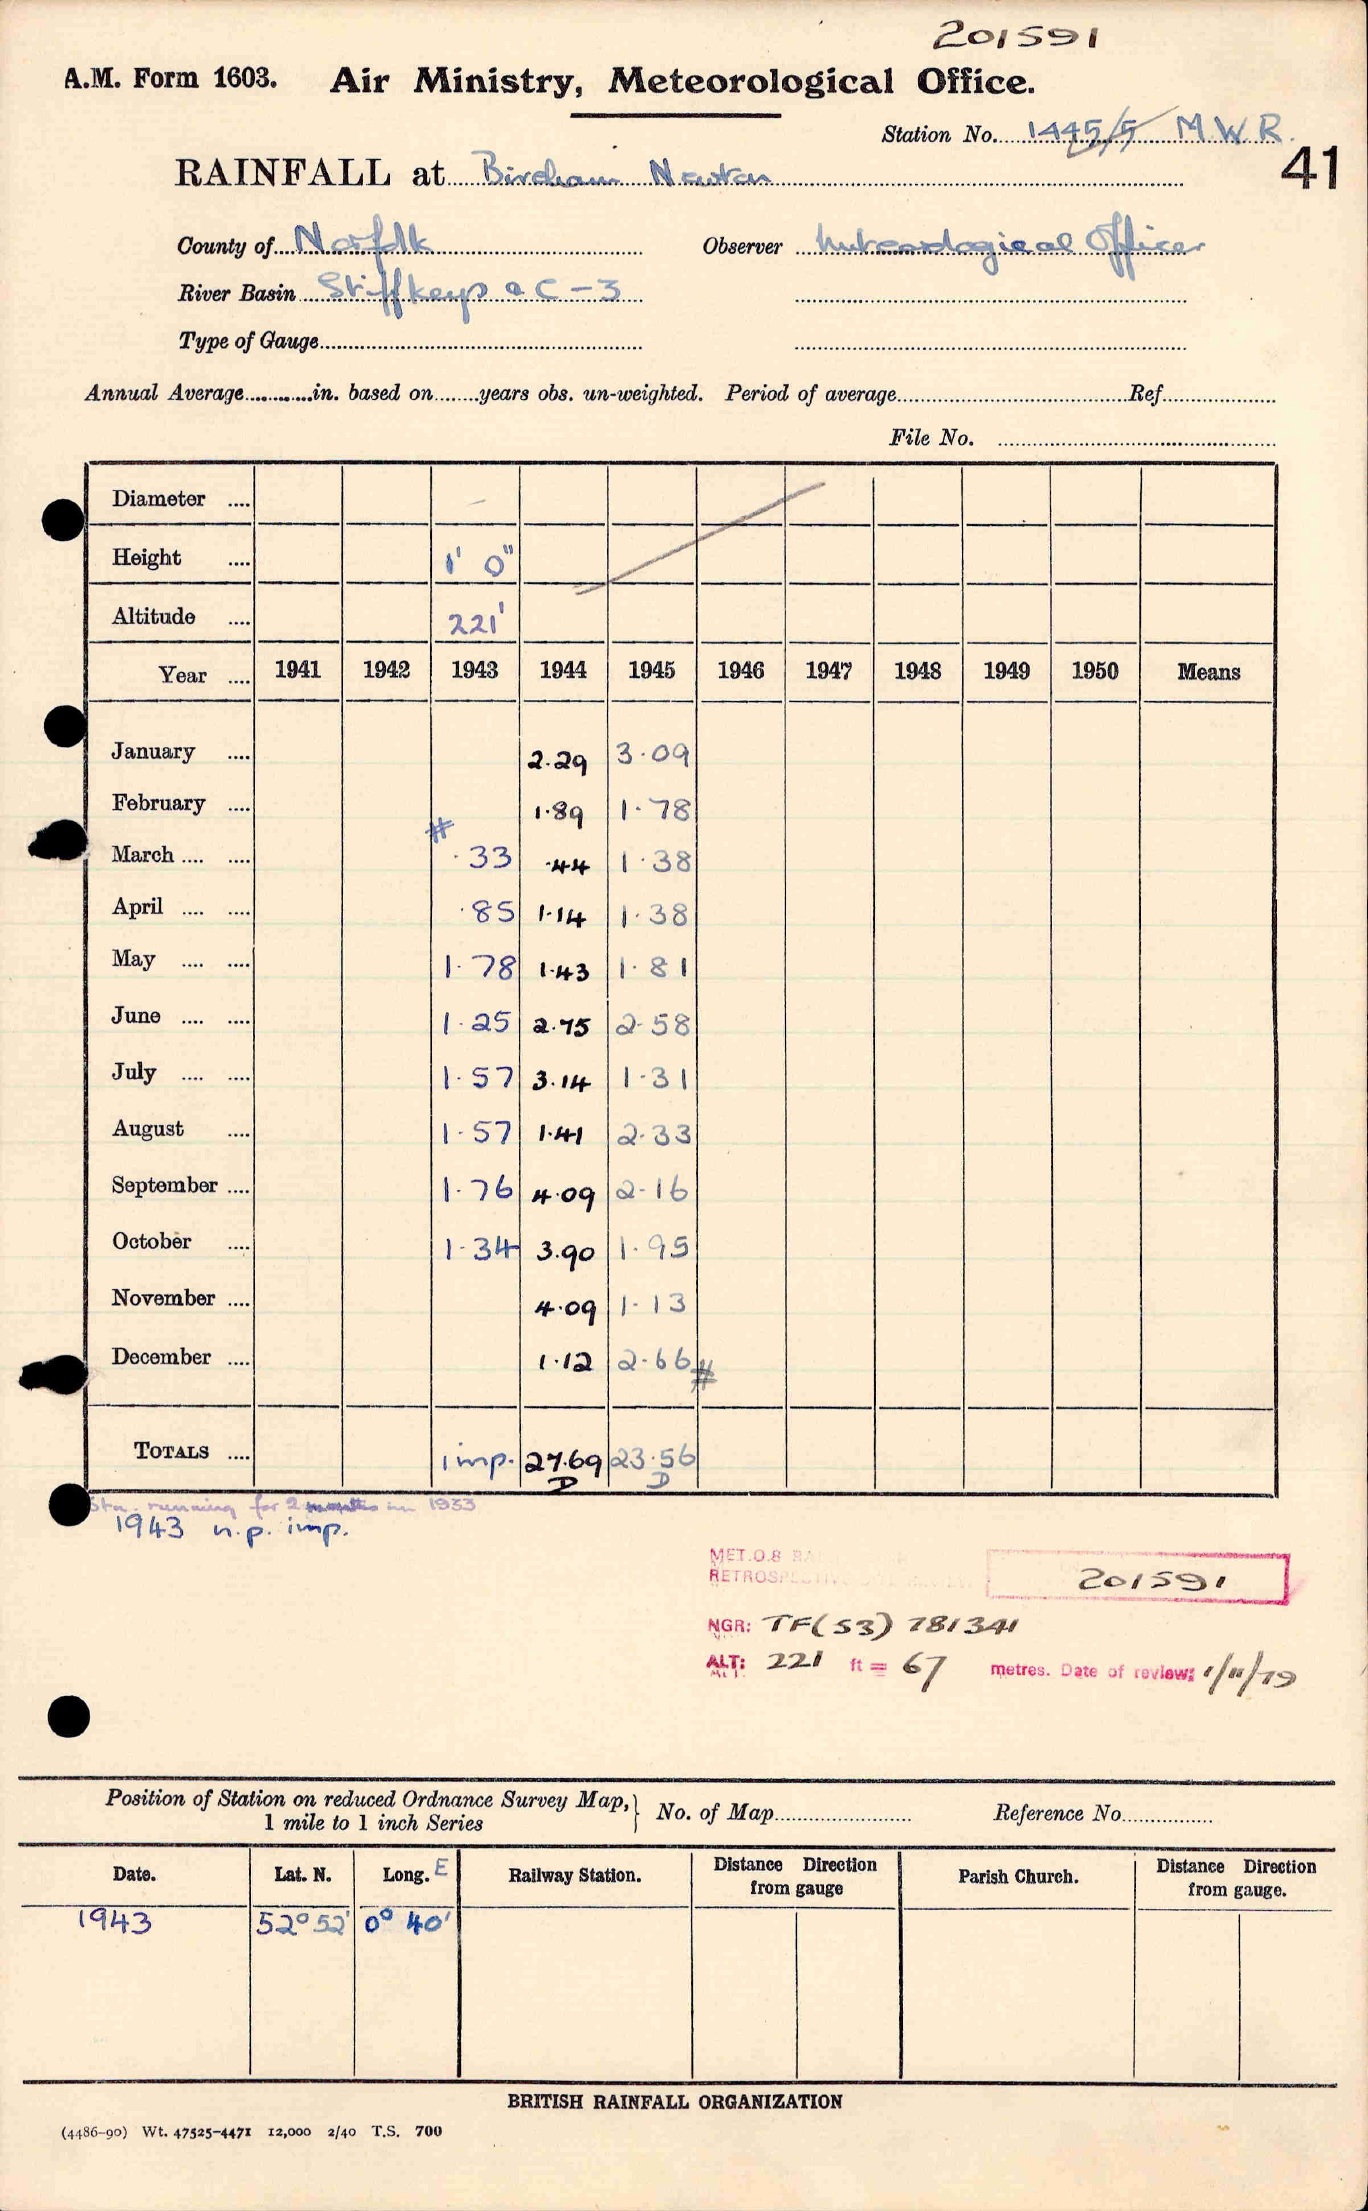 201591
A.M. Form 1603. Air Ministry, Meteorological Office.
Station No. 1445/5 M.W.R.
41
RAINFALL at Bircham Newton
County of Norfolk Observer Meteorological Officer
River Basin Stiffkey & C-3
Type of Gauge
Annual Average in. based on years obs. un-weighted. Period of average Ref.
File No.
Diameter
Height 1' 0"
Altitude 221'
Year 1941 1942 1943 1944 1945 1946 1947 1948 1949 1950 Means
January 2.29 3.09
February 1.89 1.78
# March .33 .44 1.38
April .85 1.14 1.38
May 1.78 1.43 1.81
June 1.25 2.75 2.58
July 1.57 3.14 1.31
August 1.57 1.41 2.33
September 1.76 4.09 2.16
October 1.34 3.90 1.95
November 4.09 1.13
December 1.12 2.66 #
TOTALS imp. 27.69 23.56
D D
Stn. running for 2 months in 1933
1943 n.p. imp.
MET.O.8
RETROSPECTIVE 201591
NGR: TF(53) 781341
ALT: 221 ft = 67 metres. Date of review: 1/11/79
Position of Station on reduced Ordnance Survey Map, 1 mile to 1 inch Series No. of Map Reference No.
Date. Lat. N. Long. E Railway Station. Distance Direction from gauge Parish Church. Distance Direction from gauge.
1943 52° 52' 0° 40'
BRITISH RAINFALL ORGANIZATION
(4486-90) Wt. 47525-4471 12,000 2/40 T.S. 700